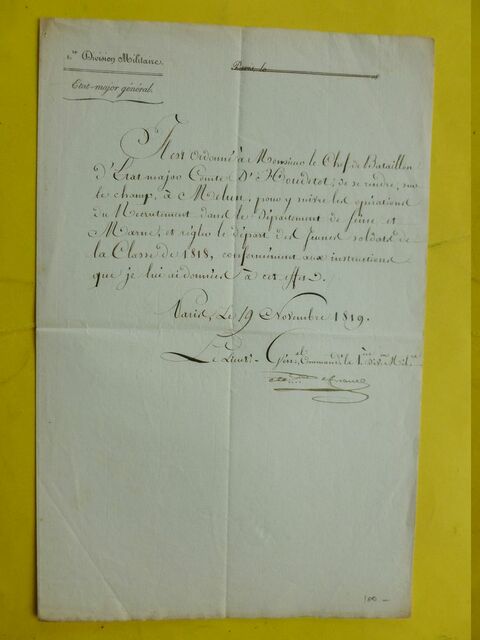 1.ère Division Militaire.
Paris, le
Etat-major général.
Il est Ordonné à Monsieur le Chef de Bataillon
d'Etat major Comte D'Houdetot, de se rendre, sur
le champ, à Melun, pour y suivre les opérations
du Recrutement dans le département de Seine et
Marne, et régler le départ des Jeunes soldats de
la Classe de 1818, conformément aux instructions
que je lui ai données à cet effet.
Paris, Le 19 Novembre 1819.
Le Lieut.- Gén.al Command.t la 1.ère D.on M.re
100.-